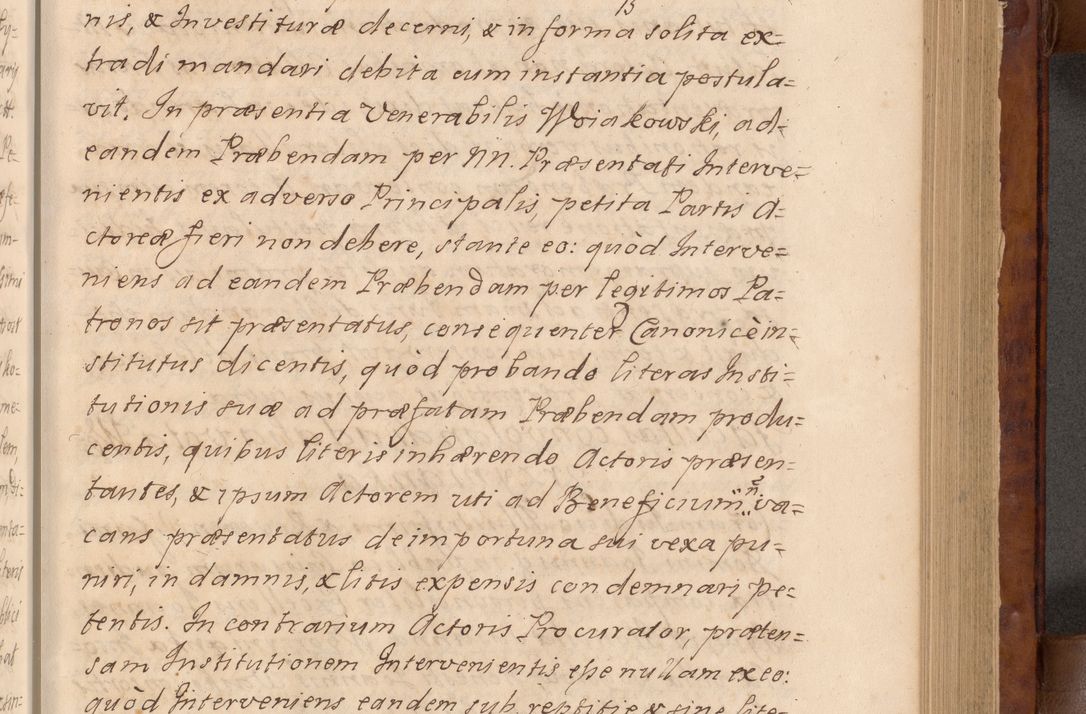 nis, & Investituræ decerni, & in forma solita ex=
tradi mandari debita cum instantia postula=
vit. In præsentia Venerabilis Woiakowski, ad=
eandem Præbendam per NN. Præsentati Interve=
nientis ex adverso Principalis, petita Partis A=
ctoreæ fieri non debere, stante eo: quòd Interve=
niens ad eandem Præbendam per legitimos Pa=
tronos sit præsentatus, consequenter Canonicè in=
stitutus dicentis, quòd probando literas Insti=
tutionis suæ ad præfatam Præbendam produ=
centis, quibus literis inhærendo Actoris præsen=
tantes, & ipsum Actorem uti ad Beneficium n va=
cans præsentatus de importuna sui vexa pu=
niri, in damnis, & litis expensis condemnari pe=
tentis. In contrarium Actoris Procurator, præten=
sam Institutionem Intervenientis esse nullam ex eo:
quòd Interveniens eandem sub reptitie & sine lite=